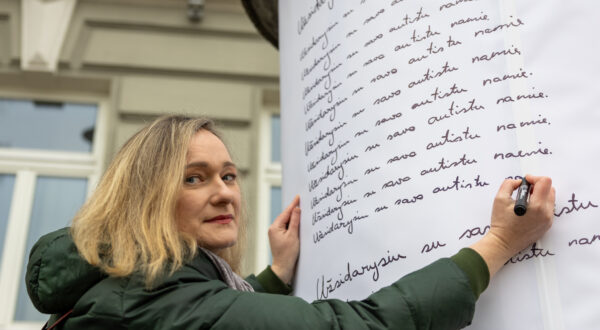 Užsidarysiu su
Užsidarysiu su savo autistu namie.
Užsidarysiu su savo autistu namie.
Užsidarysiu su savo autistu namie.
Užsidarysiu su savo autistu namie.
Užsidarysiu su savo autistu namie.
Užsidarysiu su savo autistu namie.
Užsidarysiu su savo autistu namie.
Užsidarysiu su savo autistu
Užsidarysiu su